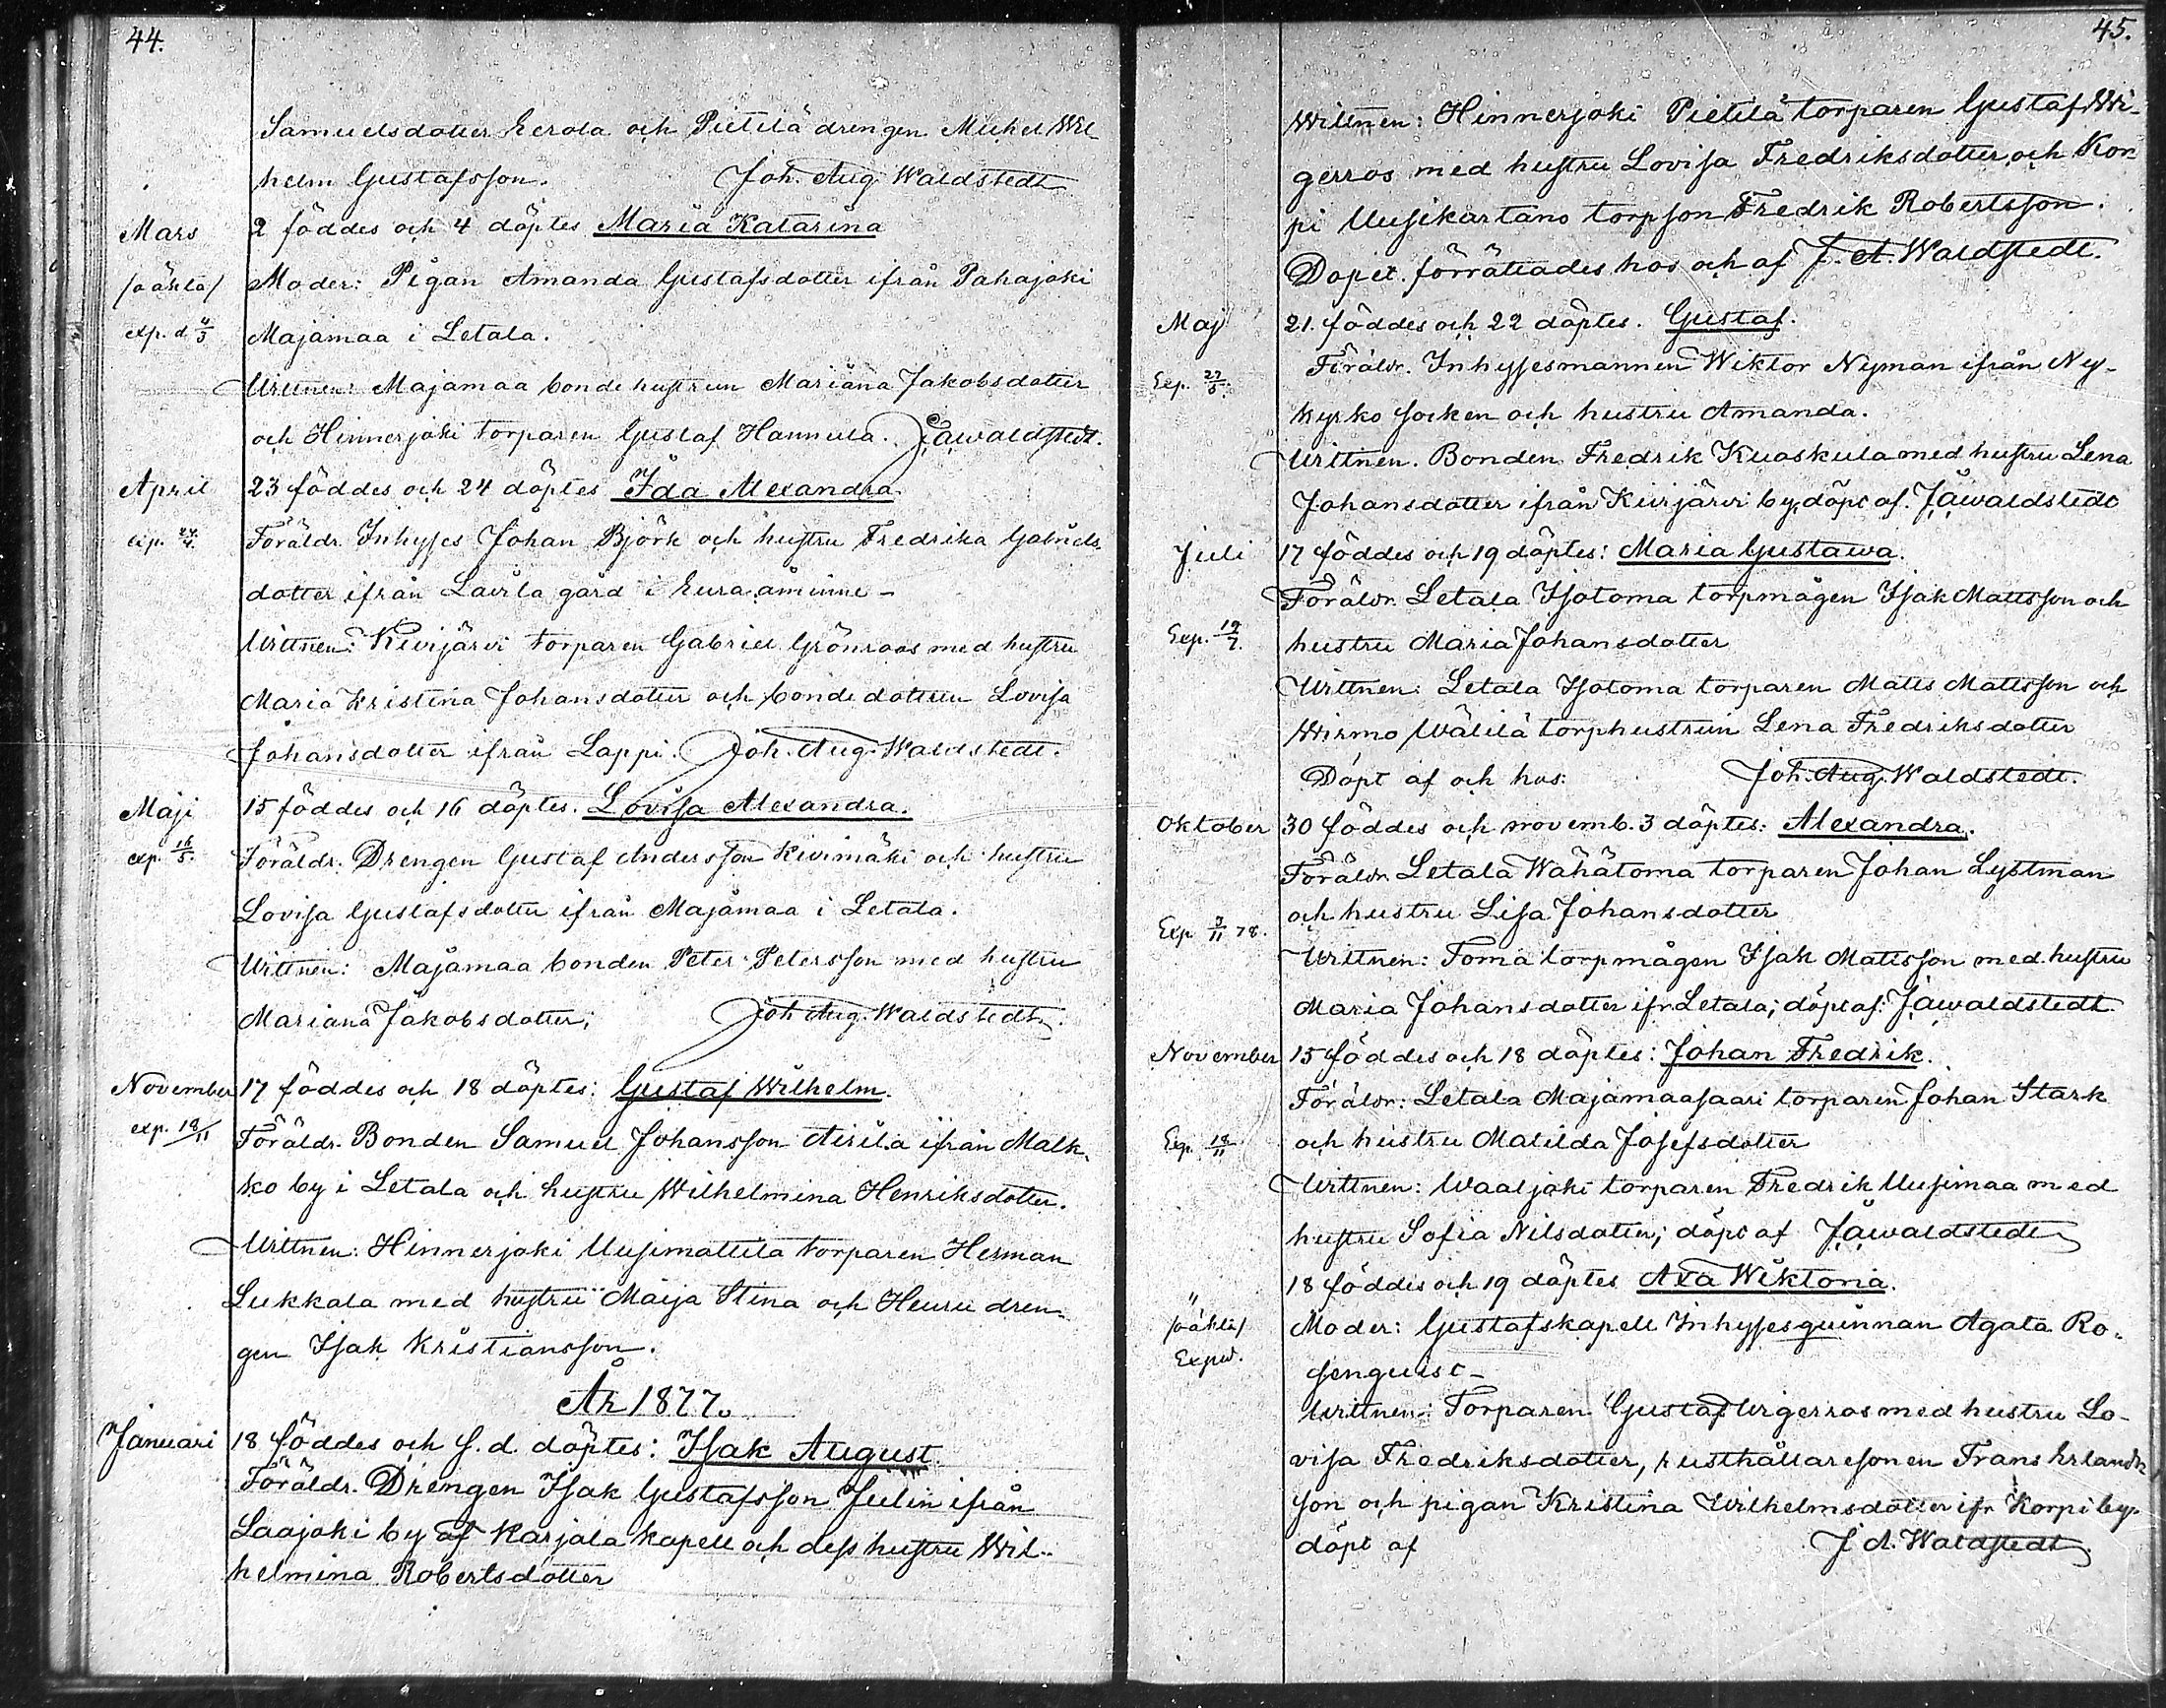 44.
Samuelsdotter Eerola och Pietilä drengen Mickel Wil
helm Gustafsson. Joh. Aug. Waldstedt
Mars 2 föddes och 4 döptes Maria Katarina
/oäkta/ Moder: Pigan Amanda Gustafsdotter ifrån Pahajoki
exp. d 4/3 Majamaa i Letala.
Wittnen: Majamaa bonde hustrun Mariana Jakobsdotter
och Hinnerjoki torparen Gustaf Hannula. JAWaldstedt.
April 23 föddes och 24 döptes Ida Alexandra.
exp. 24/4. Föräldr. Inhyses Johan Björk och hustru Fredrika Gabriels
dotter ifrån Lavila gård i Euraåminne -
Wittnen: Kivijärvi torparen Gabriel Grönroos med hustru
Maria Kristina Johansdotter och bonde dottren Lovisa
Johansdotter ifrån Lappi. Joh. Aug. Waldstedt.
Maji 15 föddes och 16 döptes. Lovisa Alexandra.
exp. 16/5. Föräldr. Drengen Gustaf Andersson Kivimäki och hustru
Lovisa Gustafsdotter ifrån Majamaa i Letala.
Wittnen: Majamaa bonden Peter Petersson med hustru
Mariana Jakobsdotter; Joh. Aug. Waldstedt.
November 17 föddes och 18 döptes: Gustaf Wilhelm.
exp. 18/11 Föräldr. Bonden Samuel Johansson Airila ifrån Malk-
ko by i Letala och hustru Wilhelmina Henriksdotter.
Wittnen: Hinnerjoki Uusimattila torparen Herman
Lukkala med hustru Maija Stina och Heuru dren-
gen Isak Kristiansson.
År 1877.
Januari 18 föddes och s. d. döptes: Isak August.
Föräldr. Drengen Isak Gustafsson Julin ifrån
Laajoki by af Karjala kapell och dess hustru Wil-
helmina Robertsdotter
45.
Wittnen: Hinnerjoki Pietilä torparen Gustaf Wi-
gerros med hustru Lovisa Fredriksdotter, och Kor-
pi Uusikartano torpson Fredrik Robertsson.
Dopet förrättades hos och af J. A. Waldstedt.
Maj 21. föddes och 22 döptes. Gustaf.
Föräldr. Inhysesmannen Wiktor Nyman ifrån Ny-
Exp. 27/5.
kyrko socken och hustru Amanda.
Wittnen. Bonden Fredrik Kuoskula med hustru Lena
Johansdotter ifrån Kivijärvi by, döpt af. JAWaldstedt
Juli 17 föddes och 19 döptes: Maria Gustawa.
Föräldr. Letala Isotoma torpmågen Isak Mattsson och
Exp. 19/7. hustru Maria Johansdotter
Wittnen: Letala Isotoma torparen Matts Mattsson och
Wirmo Wälilä torphustrun Lena Fredriksdotter
Döpt af och hos: Joh. Aug. Waldstedt.
Oktober 30 föddes och novemb. 3 döptes: Alexandra.
Föräldr. Letala Wähätoma torparen Johan Lystman
och hustru Lisa Johansdotter
Exp 3/11 78.
Wittnen: Toma torpmågen Isak Mattsson med hustru
Maria Johansdotter ifr Letala; döpt af: JAWaldstedt
November 15 föddes och 18 döptes: Johan Fredrik.
Föräldr: Letala Majamaasaari torparen Johan Stark
Exp. 18/11 och hustru Matilda Josefsdotter
Wittnen: Waaljoki torparen Fredrik Uusimaa med
hustru Sofia Nilsdotter; döpt af JAWaldstedt
" 18 föddes och 19 döptes Axa Wiktoria.
/oäkta/ Moder: Gustafskapell Inhysesquinnan Agata Ro-
Exped. senquist -
Wittnen: Torparen Gustaf Wigerros med hustru Lo-
visa Fredriksdotter, rusthållaresonen Frans Erlands
son och pigan Kristina Wilhelmsdotter ifr Korpi by.
döpt af J. A. Waldstedt.